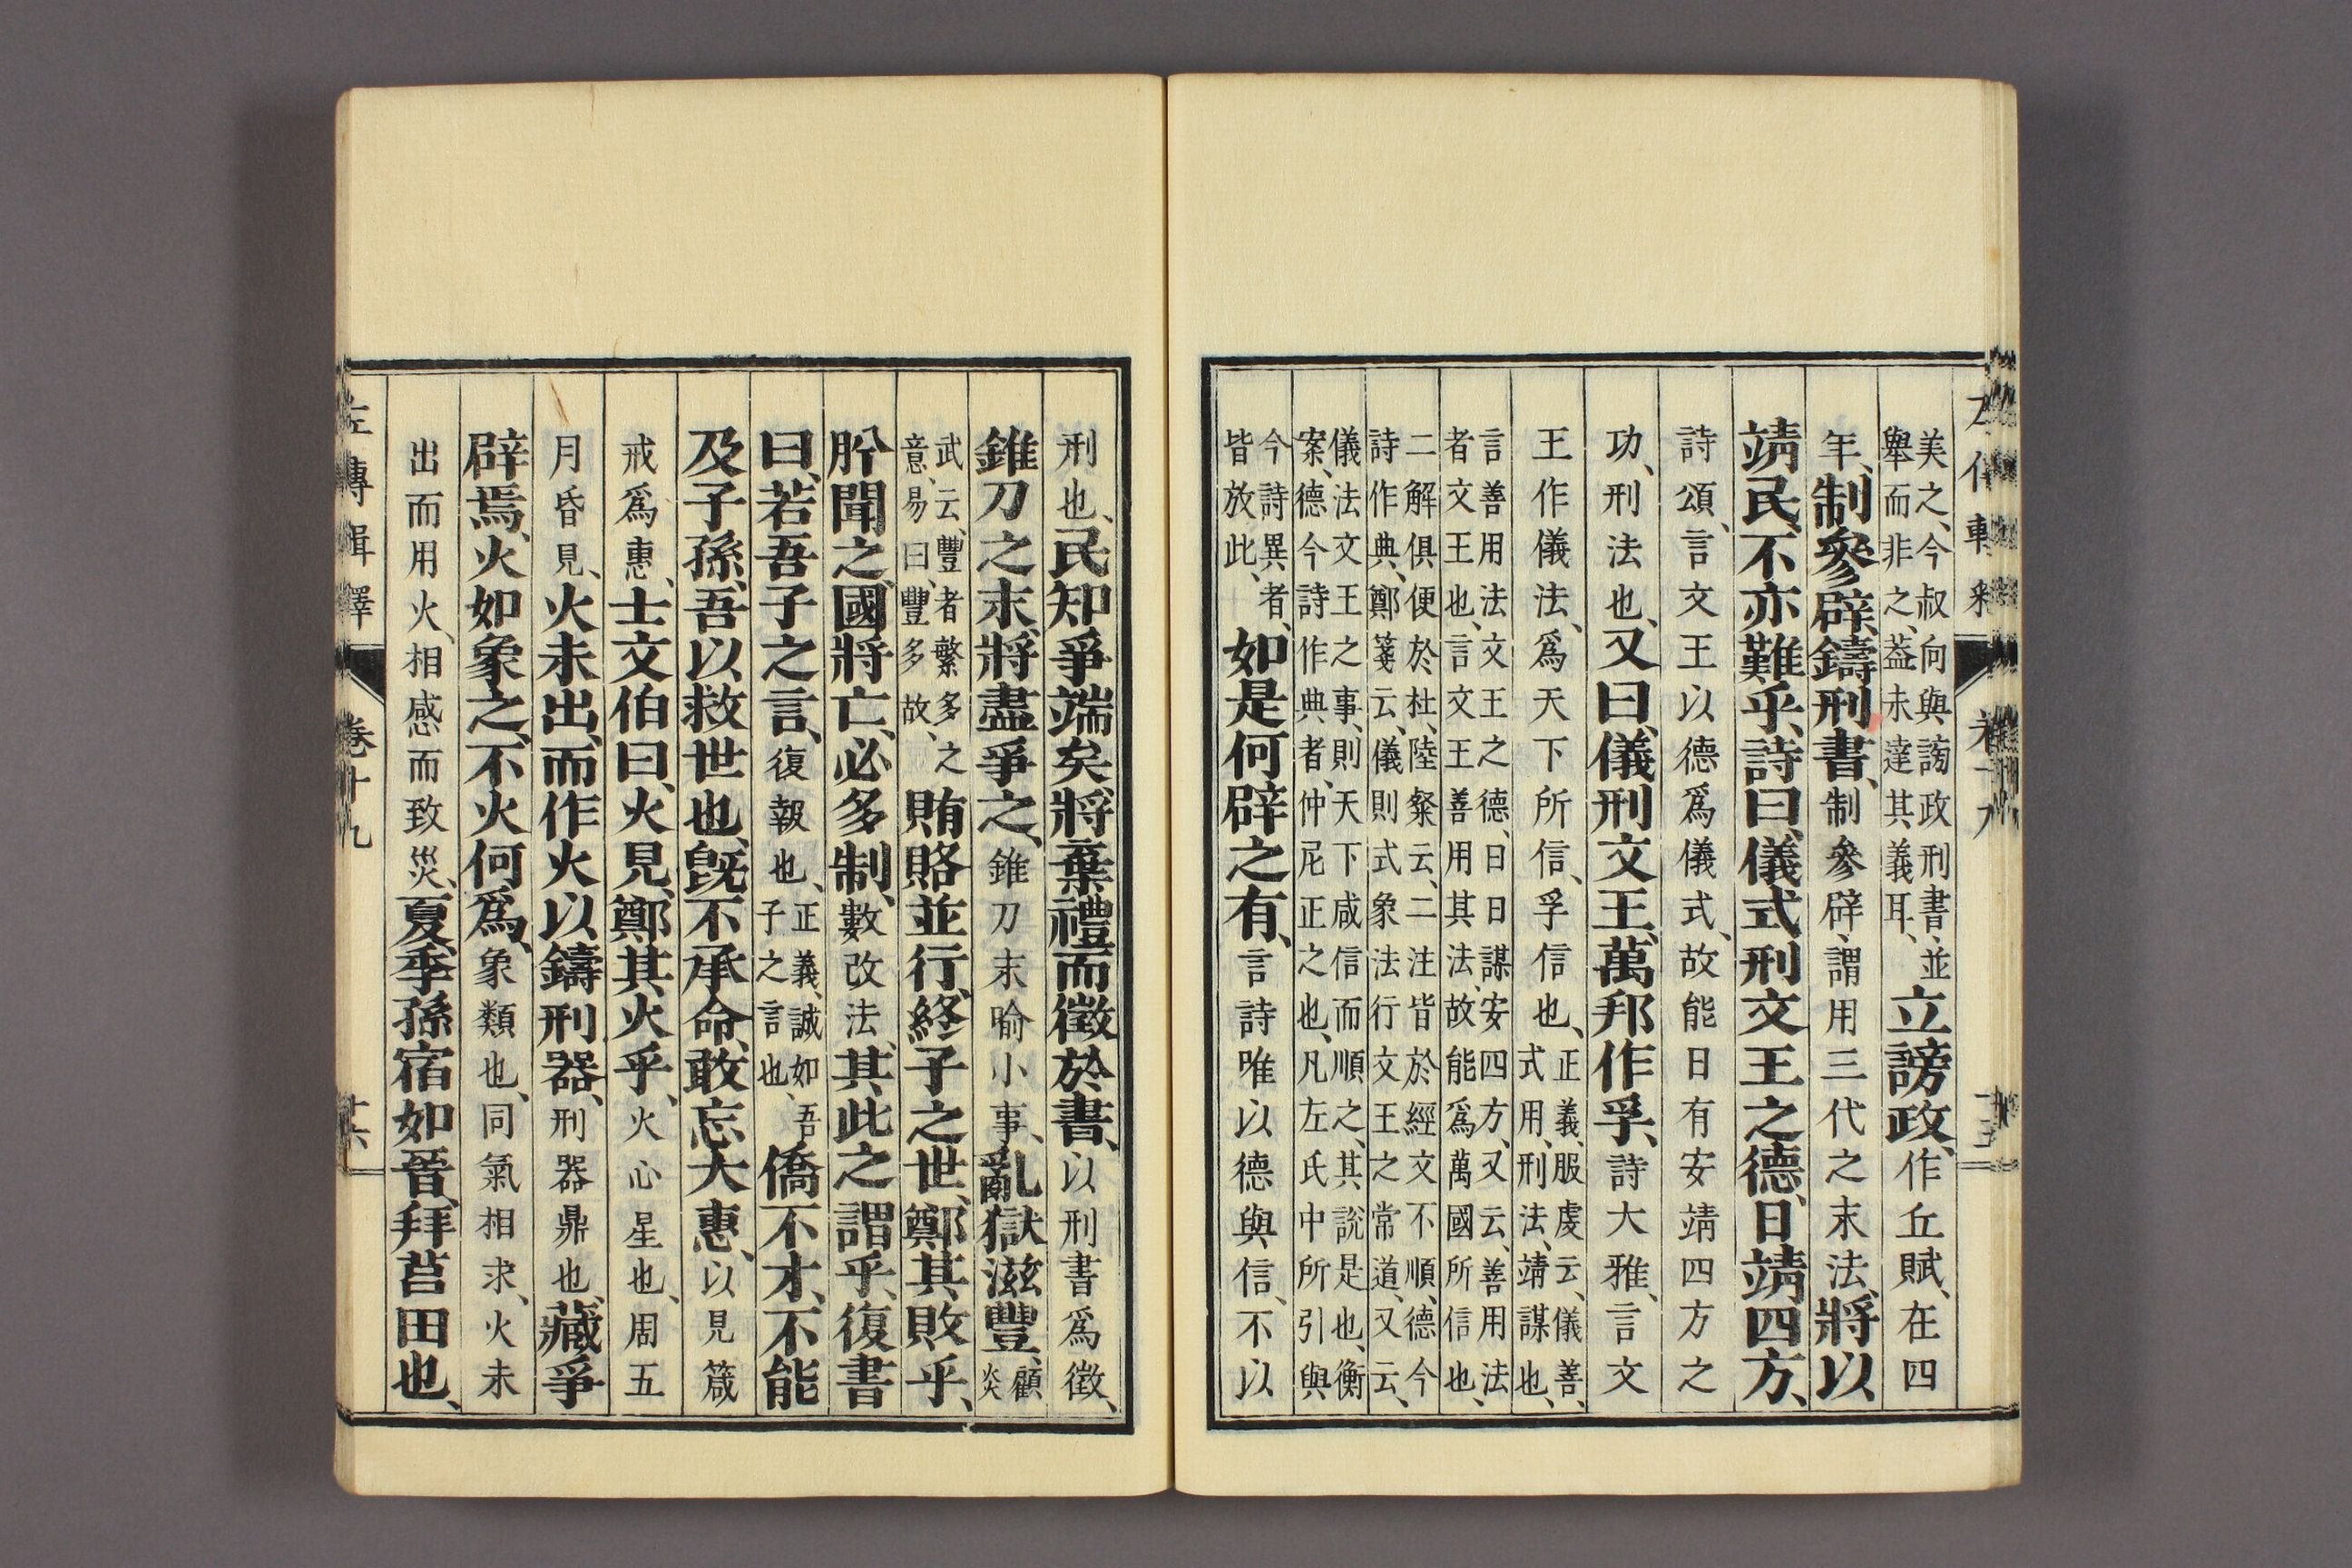 美之、今叔向與謗政刑書、並
舉而非之、葢未達其義耳、
立謗政、作丘賦、在四
年、制參辟、鑄刑書、制參辟、謂用三代之末法、將以
靖民、不亦難乎、詩曰、儀式刑文王之德、日靖四方、
詩頌、言文王以德爲儀式、故能日有安靖四方之
功、刑法也、又曰、儀刑文王、萬邦作孚、詩大雅、言文
王作儀法、爲天下所信、孚信也、
正義、服虔云、儀善、
式用、刑法、靖謀也、
言善用法文王之德、日日謀安四方、又云、善用法
者文王也、言文王善用其法、故能爲萬國所信也、
二解俱便於杜、陸粲云、二注皆於經文不順、德今
詩作典、鄭箋云、儀則式象法行文王之常道、又云、
儀法文王之事、則天下咸信而順之、其說是也、衡
案、德今詩作典者、仲尼正之也、凡左氏中所引與
今詩異者、
皆放此、
如是何辟之有、言詩唯以德與信、不以
刑也、民知爭端矣、將棄禮而徵於書、以刑書爲徵、
錐刀之末、將盡爭之、錐刀末喻小事、亂獄滋豐、
顧炎
武云、豐者繁多之
意、易曰、豐多故、
賄賂並行、終子之世、鄭其敗乎、
肸聞之、國將亡、必多制、數改法、其此之謂乎、復書
曰、若吾子之言、復報也、
正義、誠如吾
子之言也、
僑不才、不能
及子孫、吾以救世也、旣不承命、敢忘大惠、以見箴
戒爲惠、士文伯曰、火見、鄭其火乎、火心星也、周五
月昏見、火未出、而作火以鑄刑器、刑器鼎也、藏爭
辟焉、火如象之、不火何爲、象類也、同氣相求、火未
出而用火、相感而致災、夏、季孫宿如晉、拜莒田也、
左傳輯釋
卷十九
十六